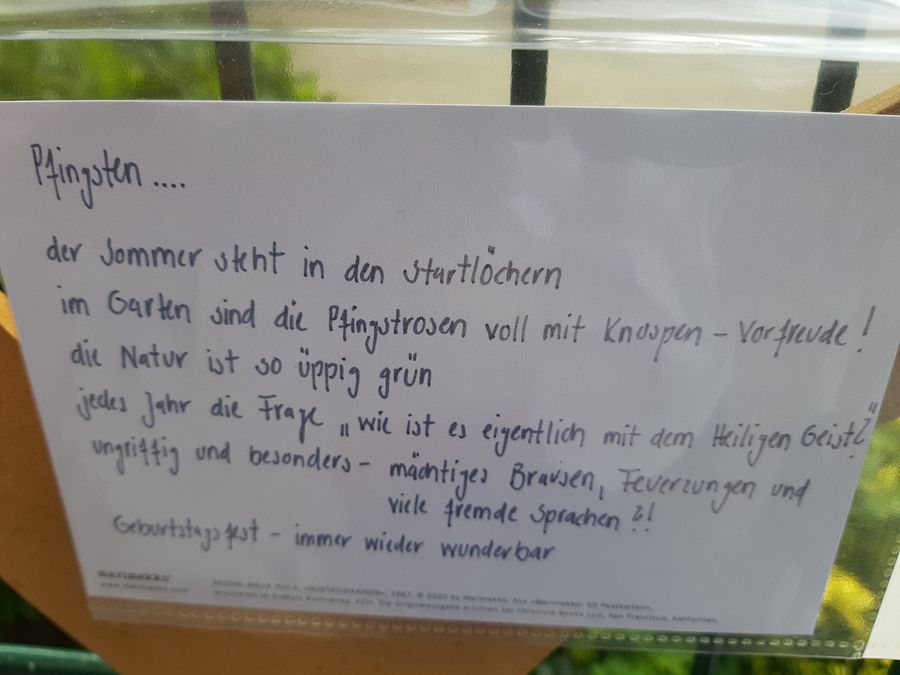 Pfingsten ....
der Sommer steht in den Startlöchern
im Garten sind die Pfingstrosen voll mit Knospen - Vorfreude!
die Natur ist so üppig grün
jedes Jahr die Frage „wie ist es eigentlich mit dem Heiligen Geist?"
ungriffig und besonders - mächtiges Brausen, Feuerzungen und
viele fremde Sprachen ?!
Geburtstagsfest - immer wieder wunderbar
marimekko
www.marimekko.com
DESIGN: MAIJA ISOLA, 1967. © 2020 by Marimekko. Aus »Marimekko: 50 Postkarten«,
erschienen im DuMont Buchverlag, Köln. Die Originalausgabe erschien bei Chronicle Books LLC, San Francisco, Kalifornien.